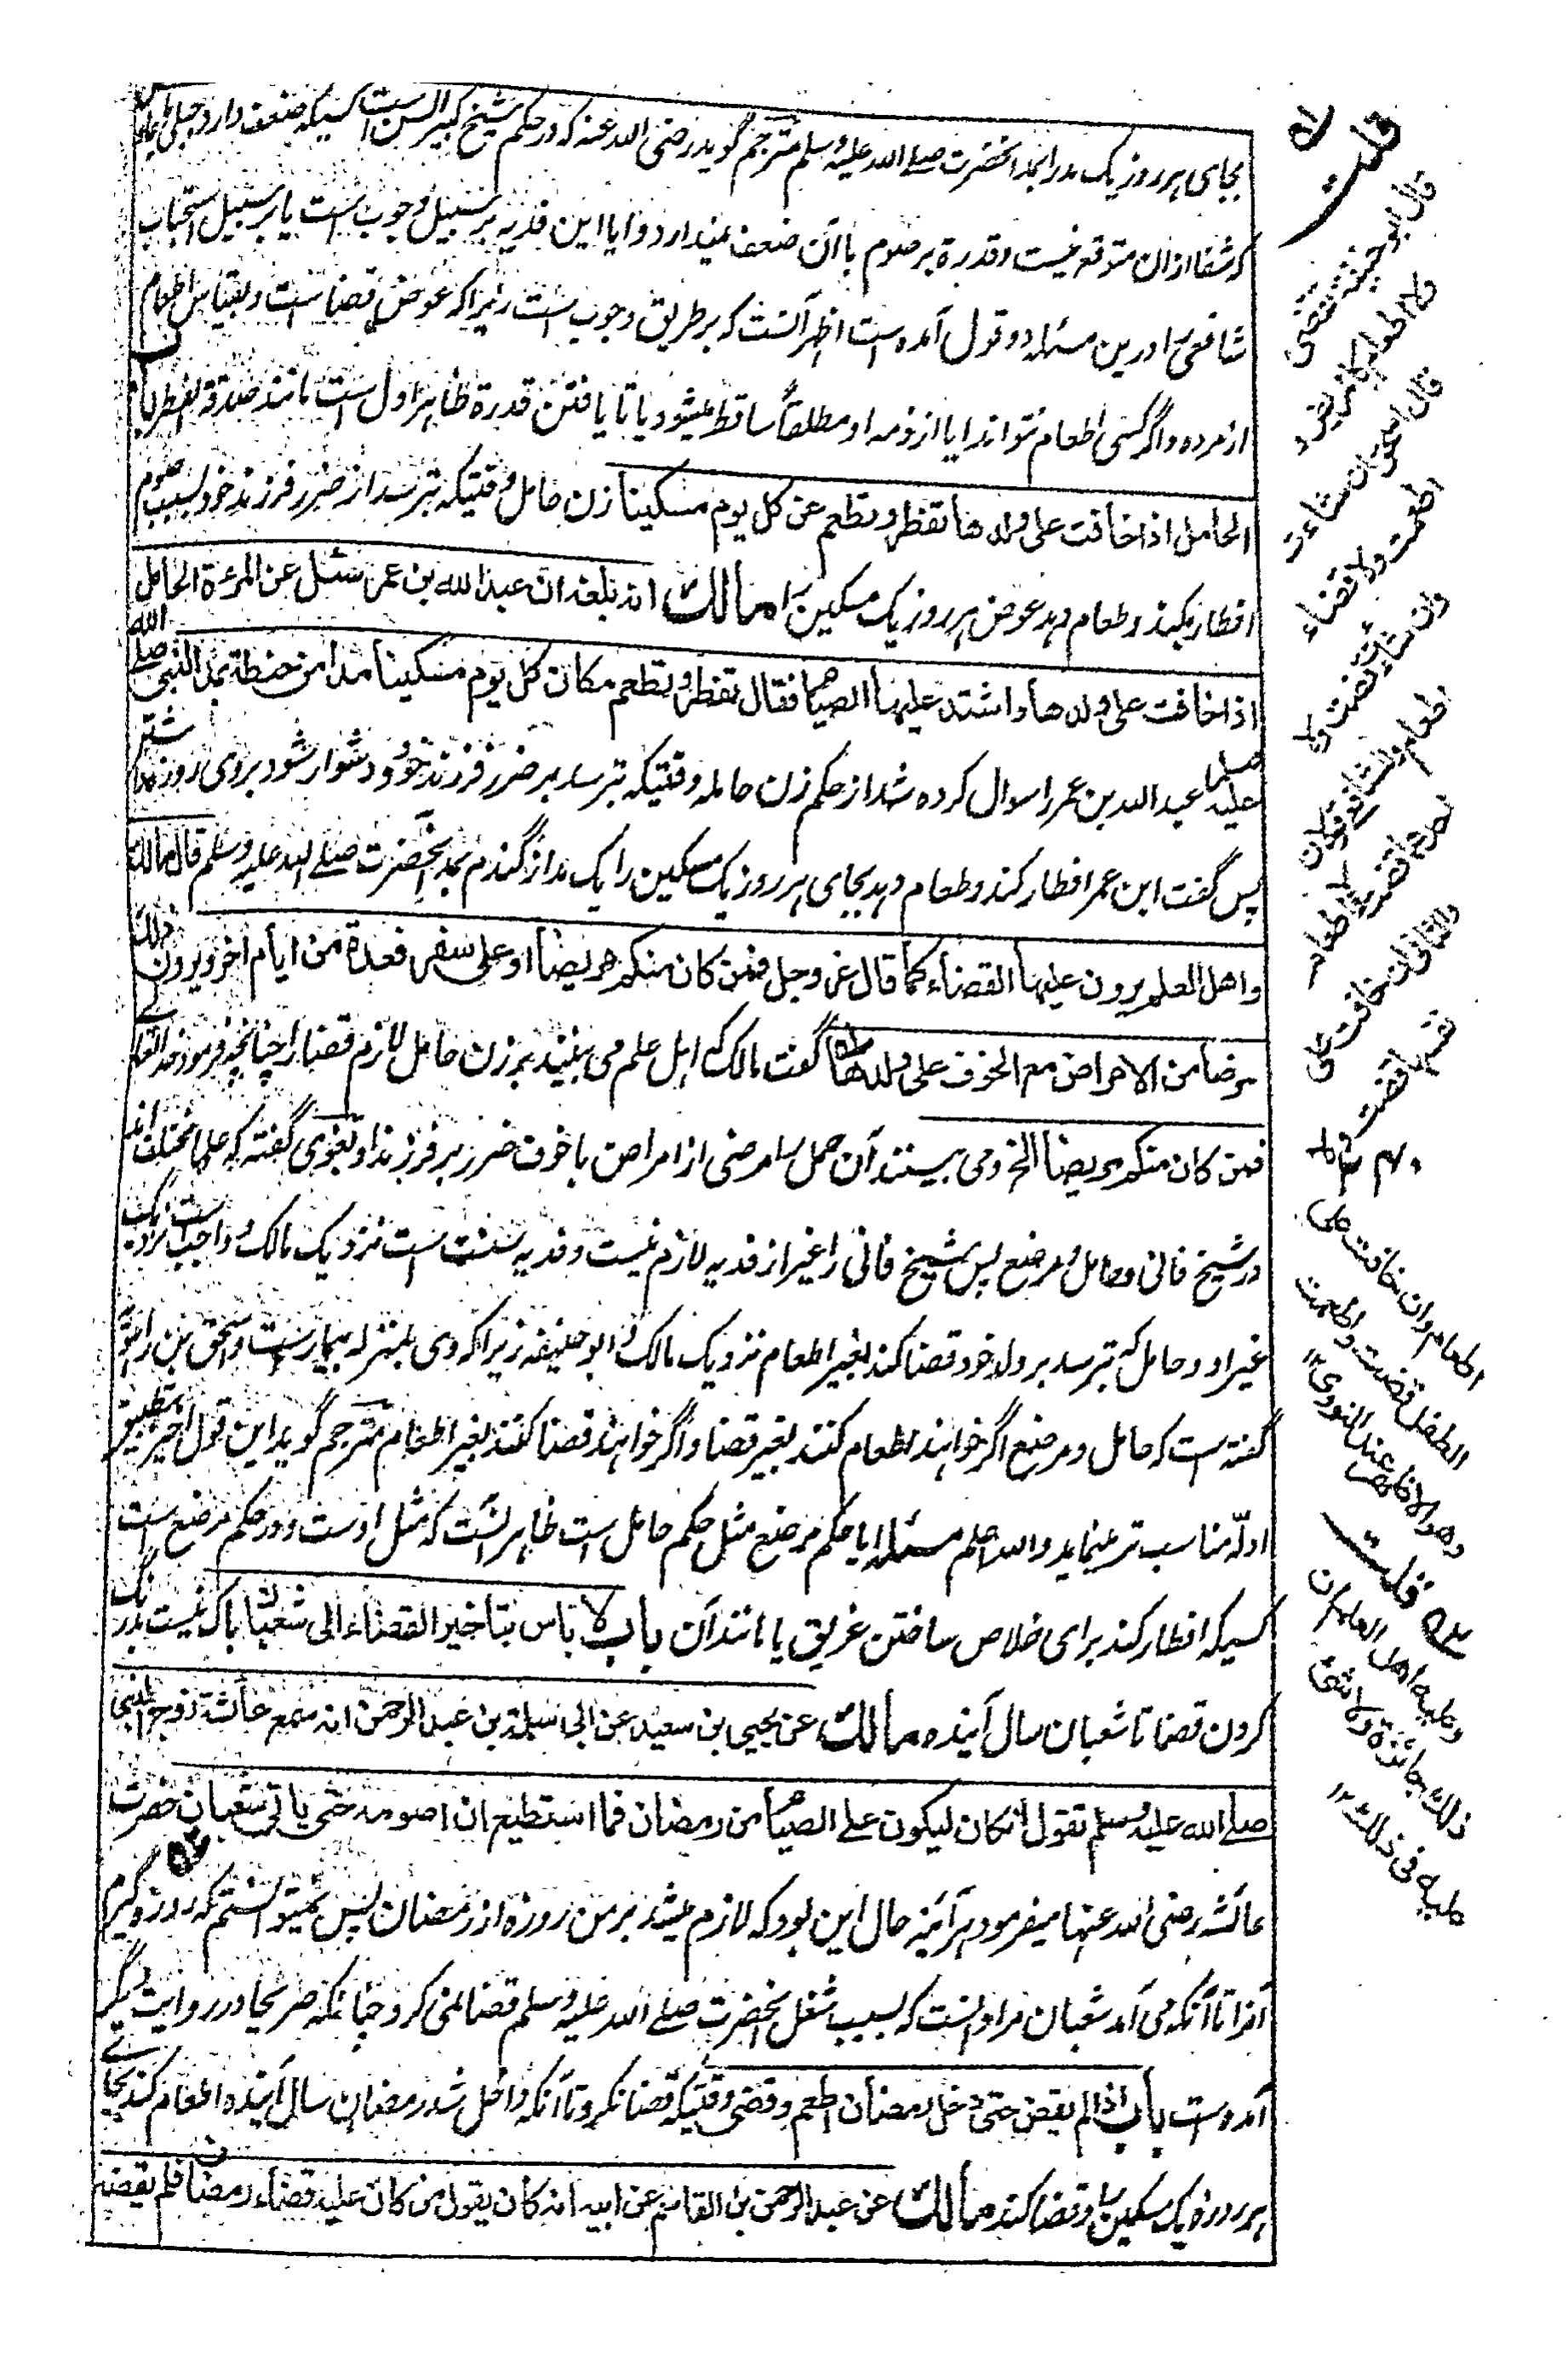 بجای هر روز یک مد را بمد آنحضرت صلے اللہ علیہ وسلم مترجم گوید رضی اللہ عنہ کہ در حکم شیخ کبیر السن است کسیکہ ضعف دارد جبلی یا
کہ شفا ازان متوقع نیست و قدرة بر صوم با آن ضعف نمیدارد و ایا این فدیہ بر سبیل وجوب است یا بر سبیل استحباب
شافعی را درین مسئلہ دو قول آمدہ است اظهر آنست کہ بر طریق وجوب است زیرا کہ عوض قضا است و بقیاس اطعام
از مردہ و اگر کسی اطعام نتواند ایا از ذمہ او مطلقاً ساقط میشود یا تا یافتن قدرة ظاهر اول است مانند صدقۃ الفطر باب
الحامل اذا خافت علی ولدها تفطر و تطعم عن کل یوم مسکینا زن حامل وقتیکہ بترسد از ضرر فرزند خود بسبب صوم
افطار بکند و طعام دهد عوض هر روز یک مسکین را مالك انہ بلغہ ان عبد اللہ بن عمر سئل عن المرءة الحامل
اذا خافت علی ولدها و اشتد علیها الصیام فقال تفطر و تطعم مکان کل یوم مسکینا مدا من حنطة بمد النبی صلے اللہ
علیہ وسلم عبد اللہ بن عمر را سوال کردہ شد از حکم زن حاملہ وقتیکہ بترسد بر ضرر فرزند خود و دشوار شود بروی روزہ داشتن
پس گفت ابن عمر افطار کند و طعام دهد بجای هر روز یک مسکین را یک مد از گندم بمد آنحضرت صلے اللہ علیہ وسلم قال مالك
و اهل العلم یرون علیها القضاء کما قال عز وجل فمن کان منکم مریضا او علی سفر فعدة من ایام اخر و یرون ذلك
مرضا من الامراض مع الخوف علی ولدها گفت مالک کہ اهل علم می بینند بر زن حامل لازم قضا را چنانچہ فرمود خدای تعالے
فمن کان منکم مریضا الخ و می بینند آن حمل را مرضی از امراض با خوف ضرر بر فرزند او بغوی گفتہ کہ علما مختلف اند
در شیخ فانی و حامل و مرضع پس شیخ فانی را غیر از فدیہ لازم نیست و فدیہ سنت است نزدیک مالک و واجب است نزدیک
غیر او و حامل کہ بترسد بر ولد خود قضا کند بغیر اطعام نزدیک مالک و ابو حنیفہ زیرا کہ وی بمنزلہ بیمار ست و اسحق بن راهویہ
گفتہ است کہ حامل و مرضع اگر خواهند اطعام کنند بغیر قضا و اگر خواهند قضا کنند بغیر اطعام مترجم گوید این قول اخیر بتطبیق
ادلہ مناسب تر مینماید و اللہ اعلم مسئلہ ایا حکم مرضع مثل حکم حامل است ظاهر آنست کہ مثل اوست و در حکم مرضع است
کسیکہ افطار کند برای خلاص ساختن غریق یا مانند آن باب لا باس بتاخیر القضاء الی شعبان باک نیست بدرنگ
کردن قضا تا شعبان سال آیندہ مالك عن یحیی بن سعید عن ابی سلمة بن عبد الرحمن انہ سمع عائشة زوج النبی
صلے اللہ علیہ وسلم تقول انکان لیکون علے الصیام من رمضان فما استطیع ان اصومہ حتی یاتی شعبان حضرت
عائشہ رضی اللہ عنها میفرمود هر آئینہ حال این بود کہ لازم میشد بر من روزہ از رمضان پس نمیتوانستم کہ روزہ گیرم
آنرا تا آنکہ می آمد شعبان مراد آنست کہ بسبب شغل آنحضرت صلے اللہ علیہ وسلم قضا نمی کرد چنانکہ صریحا در روایت دیگر
آمدہ ست باب اذا لم یقض حتی دخل رمضان اطعم و قضی وقتیکہ قضا نکرد تا آنکہ داخل شد رمضان سال آیندہ اطعام کند بجاے
هر روزہ یک مسکین را و قضا کند مالك عن عبد الرحمن بن القاسم عن ابیہ انہ کان یقول من کان علیہ قضاء رمضان فلم یقضہ
قلت
قال ابو حنیفة تقضی
ولا اطعام
قال اسحق ان شاءت
اطعمت ولا قضاء
وان شاءت قضت ولا
اطعام
قضت ولا
اطعام وان خافت علی
الطفل قضت و اطعمت
وهو الاظهر عند النووی ۱۲
قلت
وعلیہ اهل العلم ان
ذلك جائز ولا شئ
علیہ فی ذلك ۱۲